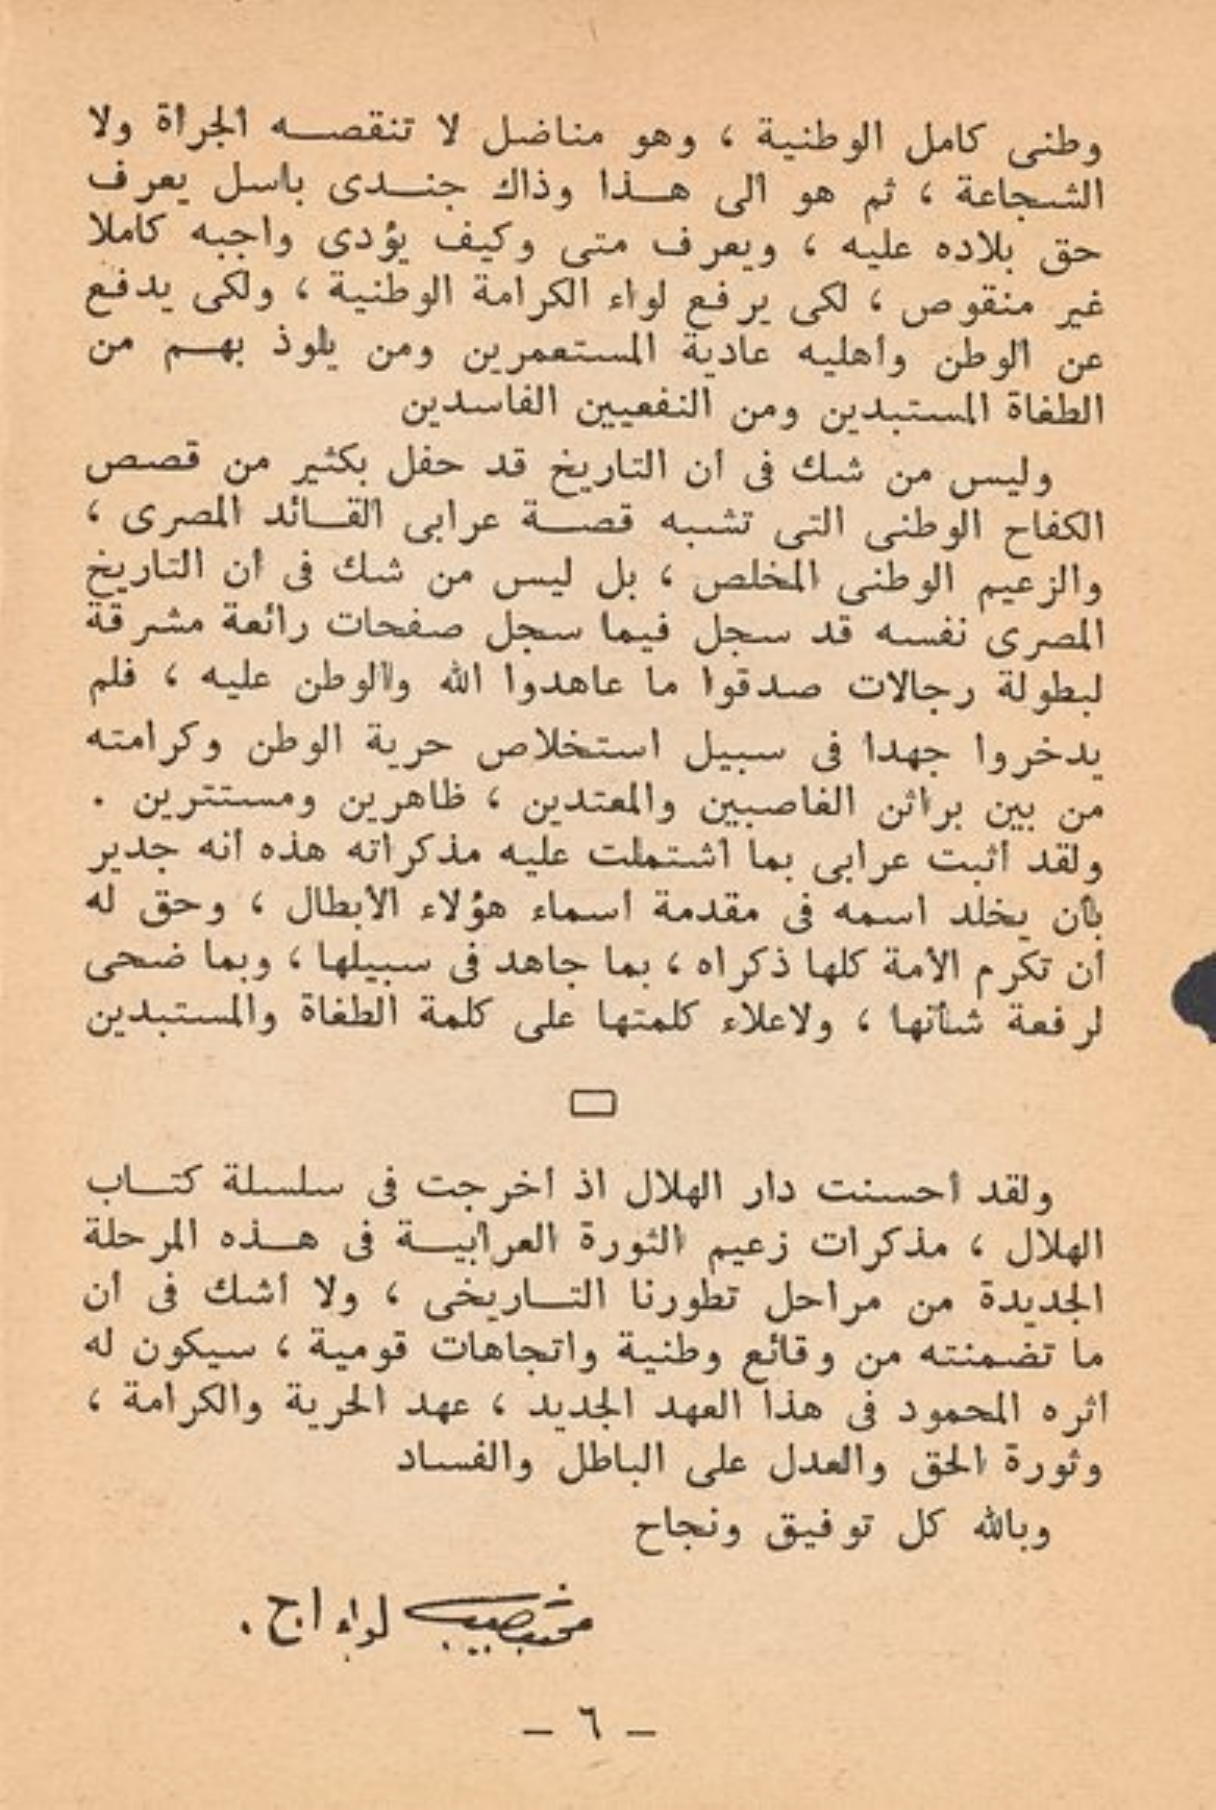 وطنى كامل الوطنية ، وهو مناضل لا تنقصـــه الجرأة ولا
الشجاعة ، ثم هو الى هـــذا وذاك جنـــدى باسل يعرف
حق بلاده عليه ، ويعرف متى وكيف يؤدى واجبه كاملا
غير منقوص ، لكى يرفع لواء الكرامة الوطنية ، ولكى يدفع
عن الوطن وأهليه عادية المستعمرين ومن يلوذ بهـــم من
الطغاة المستبدين ومن النفعيين الفاسدين
وليس من شك فى أن التاريخ قد حفل بكثير من قصص
الكفاح الوطنى التى تشبه قصـــة عرابى القـــائد المصرى ،
والزعيم الوطنى المخلص ، بل ليس من شك فى أن التاريخ
المصرى نفسه قد سجل فيما سجل صفحات رائعة مشرقة
لبطولة رجالات صدقوا ما عاهدوا الله والوطن عليه ، فلم
يدخروا جهدا فى سبيل استخلاص حرية الوطن وكرامته
من بين براثن الغاصبين والمعتدين ، ظاهرين ومستترين .
ولقد أثبت عرابى بما اشتملت عليه مذكراته هذه أنه جدير
بأن يخلد اسمه فى مقدمة أسماء هؤلاء الأبطال ، وحق له
أن تكرم الأمة كلها ذكراه ، بما جاهد فى سبيلها ، وبما ضحى
لرفعة شأنها ، ولاعلاء كلمتها على كلمة الطغاة والمستبدين
ولقد أحسنت دار الهلال اذ أخرجت فى سلسلة كتـــاب
الهلال ، مذكرات زعيم الثورة العرابيـــة فى هـــذه المرحلة
الجديدة من مراحل تطورنا التـــاريخى ، ولا أشك فى أن
ما تضمنته من وقائع وطنية واتجاهات قومية ، سيكون له
اثره المحمود فى هذا العهد الجديد ، عهد الحرية والكرامة ،
وثورة الحق والعدل على الباطل والفساد
وبالله كل توفيق ونجاح
محمد نجيب لواء ا.ح.
— ٦ —